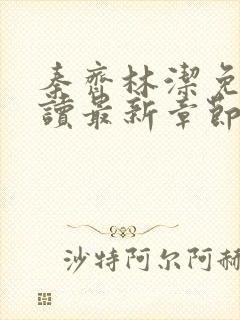 秦齊林潔免
讀最新章節
沙特阿尔阿赫